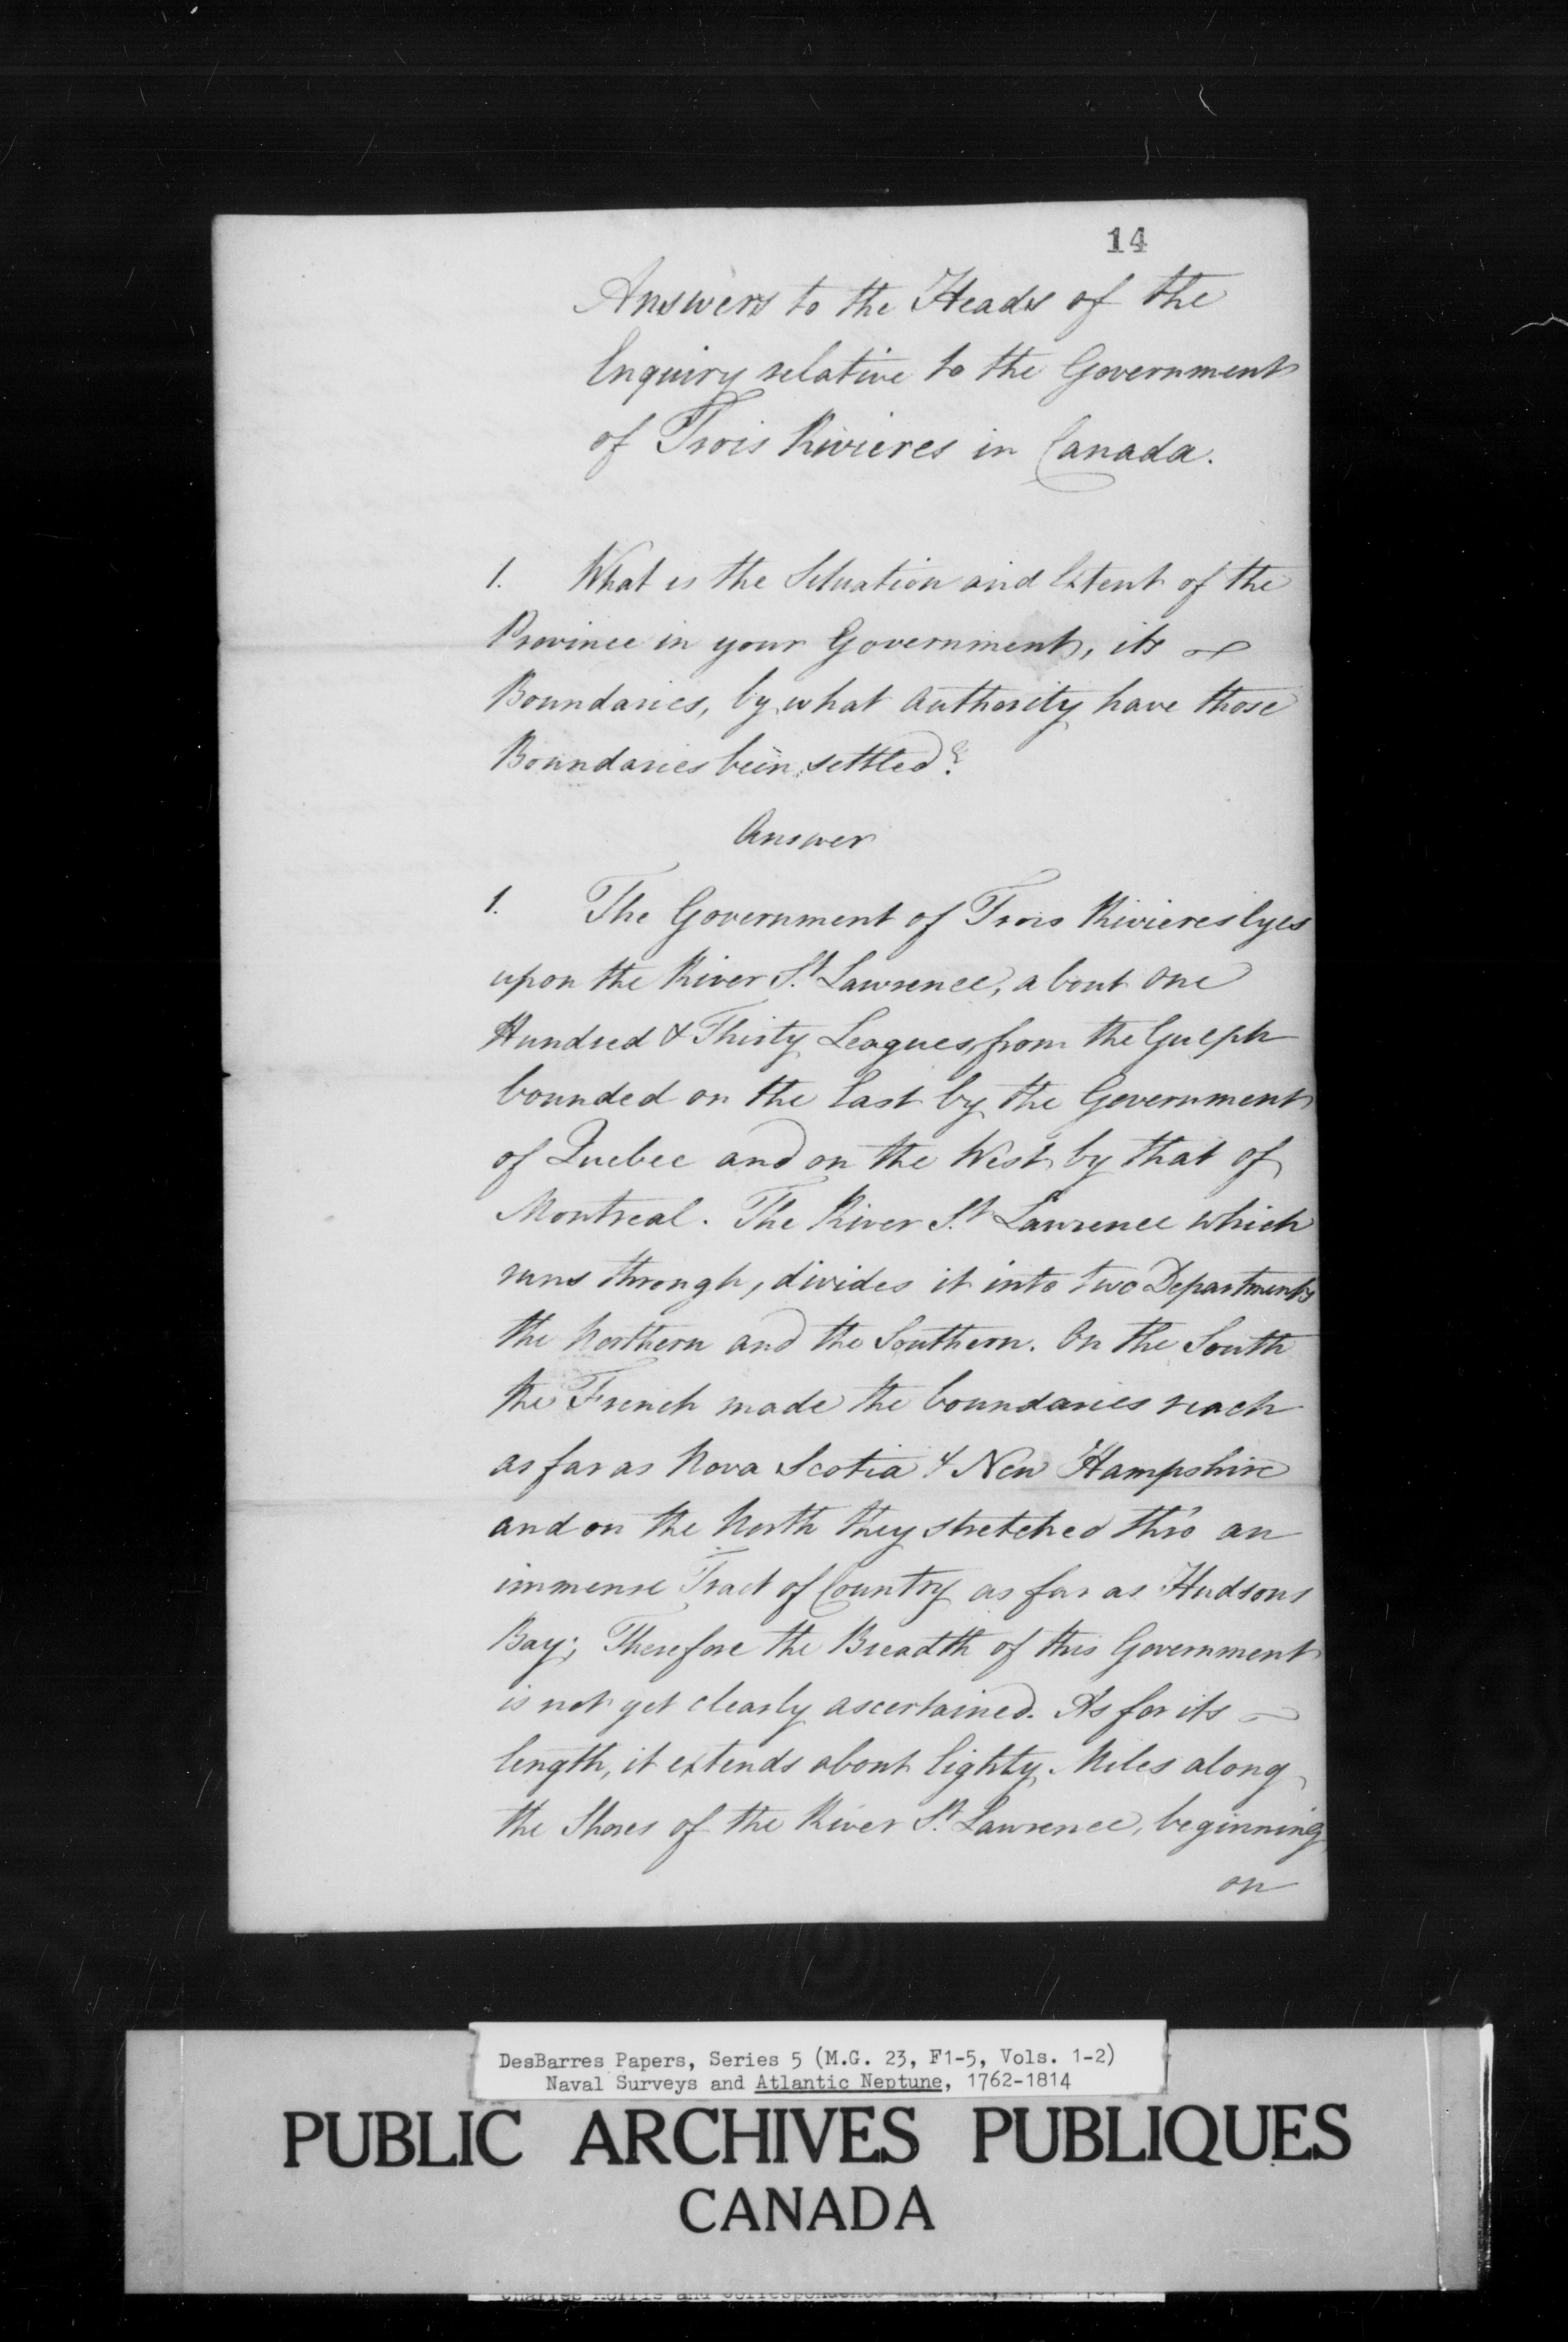 14
Answers to the Heads of the
Enquiry relative to the Government
of Trois Rivieres in Canada.
1. What is the Situation and Extent of the
Province in your Government, its
Boundaries, by what authority have those
Boundaries been settled?
Answer
1. The Government of Trois Rivieres lyes
upon the River St. Lawrence, about one
Hundred & Thirty Leagues from the Gulph
bounded on the East by the Government
of Quebec and on the West by that of
Montreal. The River St. Lawrence which
runs through, divides it into two Departments
the Northern and the Southern. On the South
the French made the boundaries reach
as far as Nova Scotia & New Hampshire
and on the North they stretched thro' an
immense Tract of Country as far as Hudsons
Bay; Therefore the Breadth of this Government
is not yet clearly ascertained. As for its
length, it extends about Eighty Miles along
the Shores of the River St. Lawrence, beginning
on
DesBarres Papers, Series 5 (M.G. 23, F1-5, Vols. 1-2)
Naval Surveys and Atlantic Neptune, 1762-1814
PUBLIC ARCHIVES PUBLIQUES
CANADA